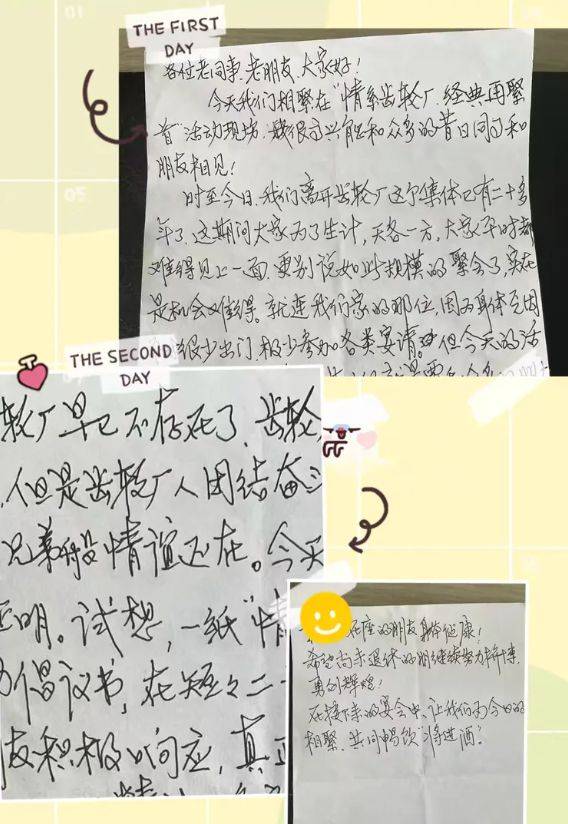 THE FIRST
DAY
各位老同事、老朋友、大家好！
今天我们相聚在“情系齿轮厂、经典再聚
首”活动现场，我很高兴能和众多的昔日同事和
朋友相见！
时至今日，我们离开齿轮厂这个集体已有二十多
年了，这期间大家为了生计，天各一方，大家平时都
难得见上一面，更别说如此规模的聚会了，实在
是机会难得。就连我们家的那位，因为身体原因
很少出门，极少参加各类宴请。但今天的活
THE SECOND
DAY
轮厂早已不存在了，齿轮
，但是齿轮厂人团结奋
兄弟般情谊还在。今天
明。试想，一纸“情
倡议书，在短短二
友积极响应，真正
在座的朋友身体健康！
希望尚未退休的朋友继续努力拼博，
再创辉煌！
在接下来的宴会中，让我们为今日的
相聚，共同畅饮“将进酒”。